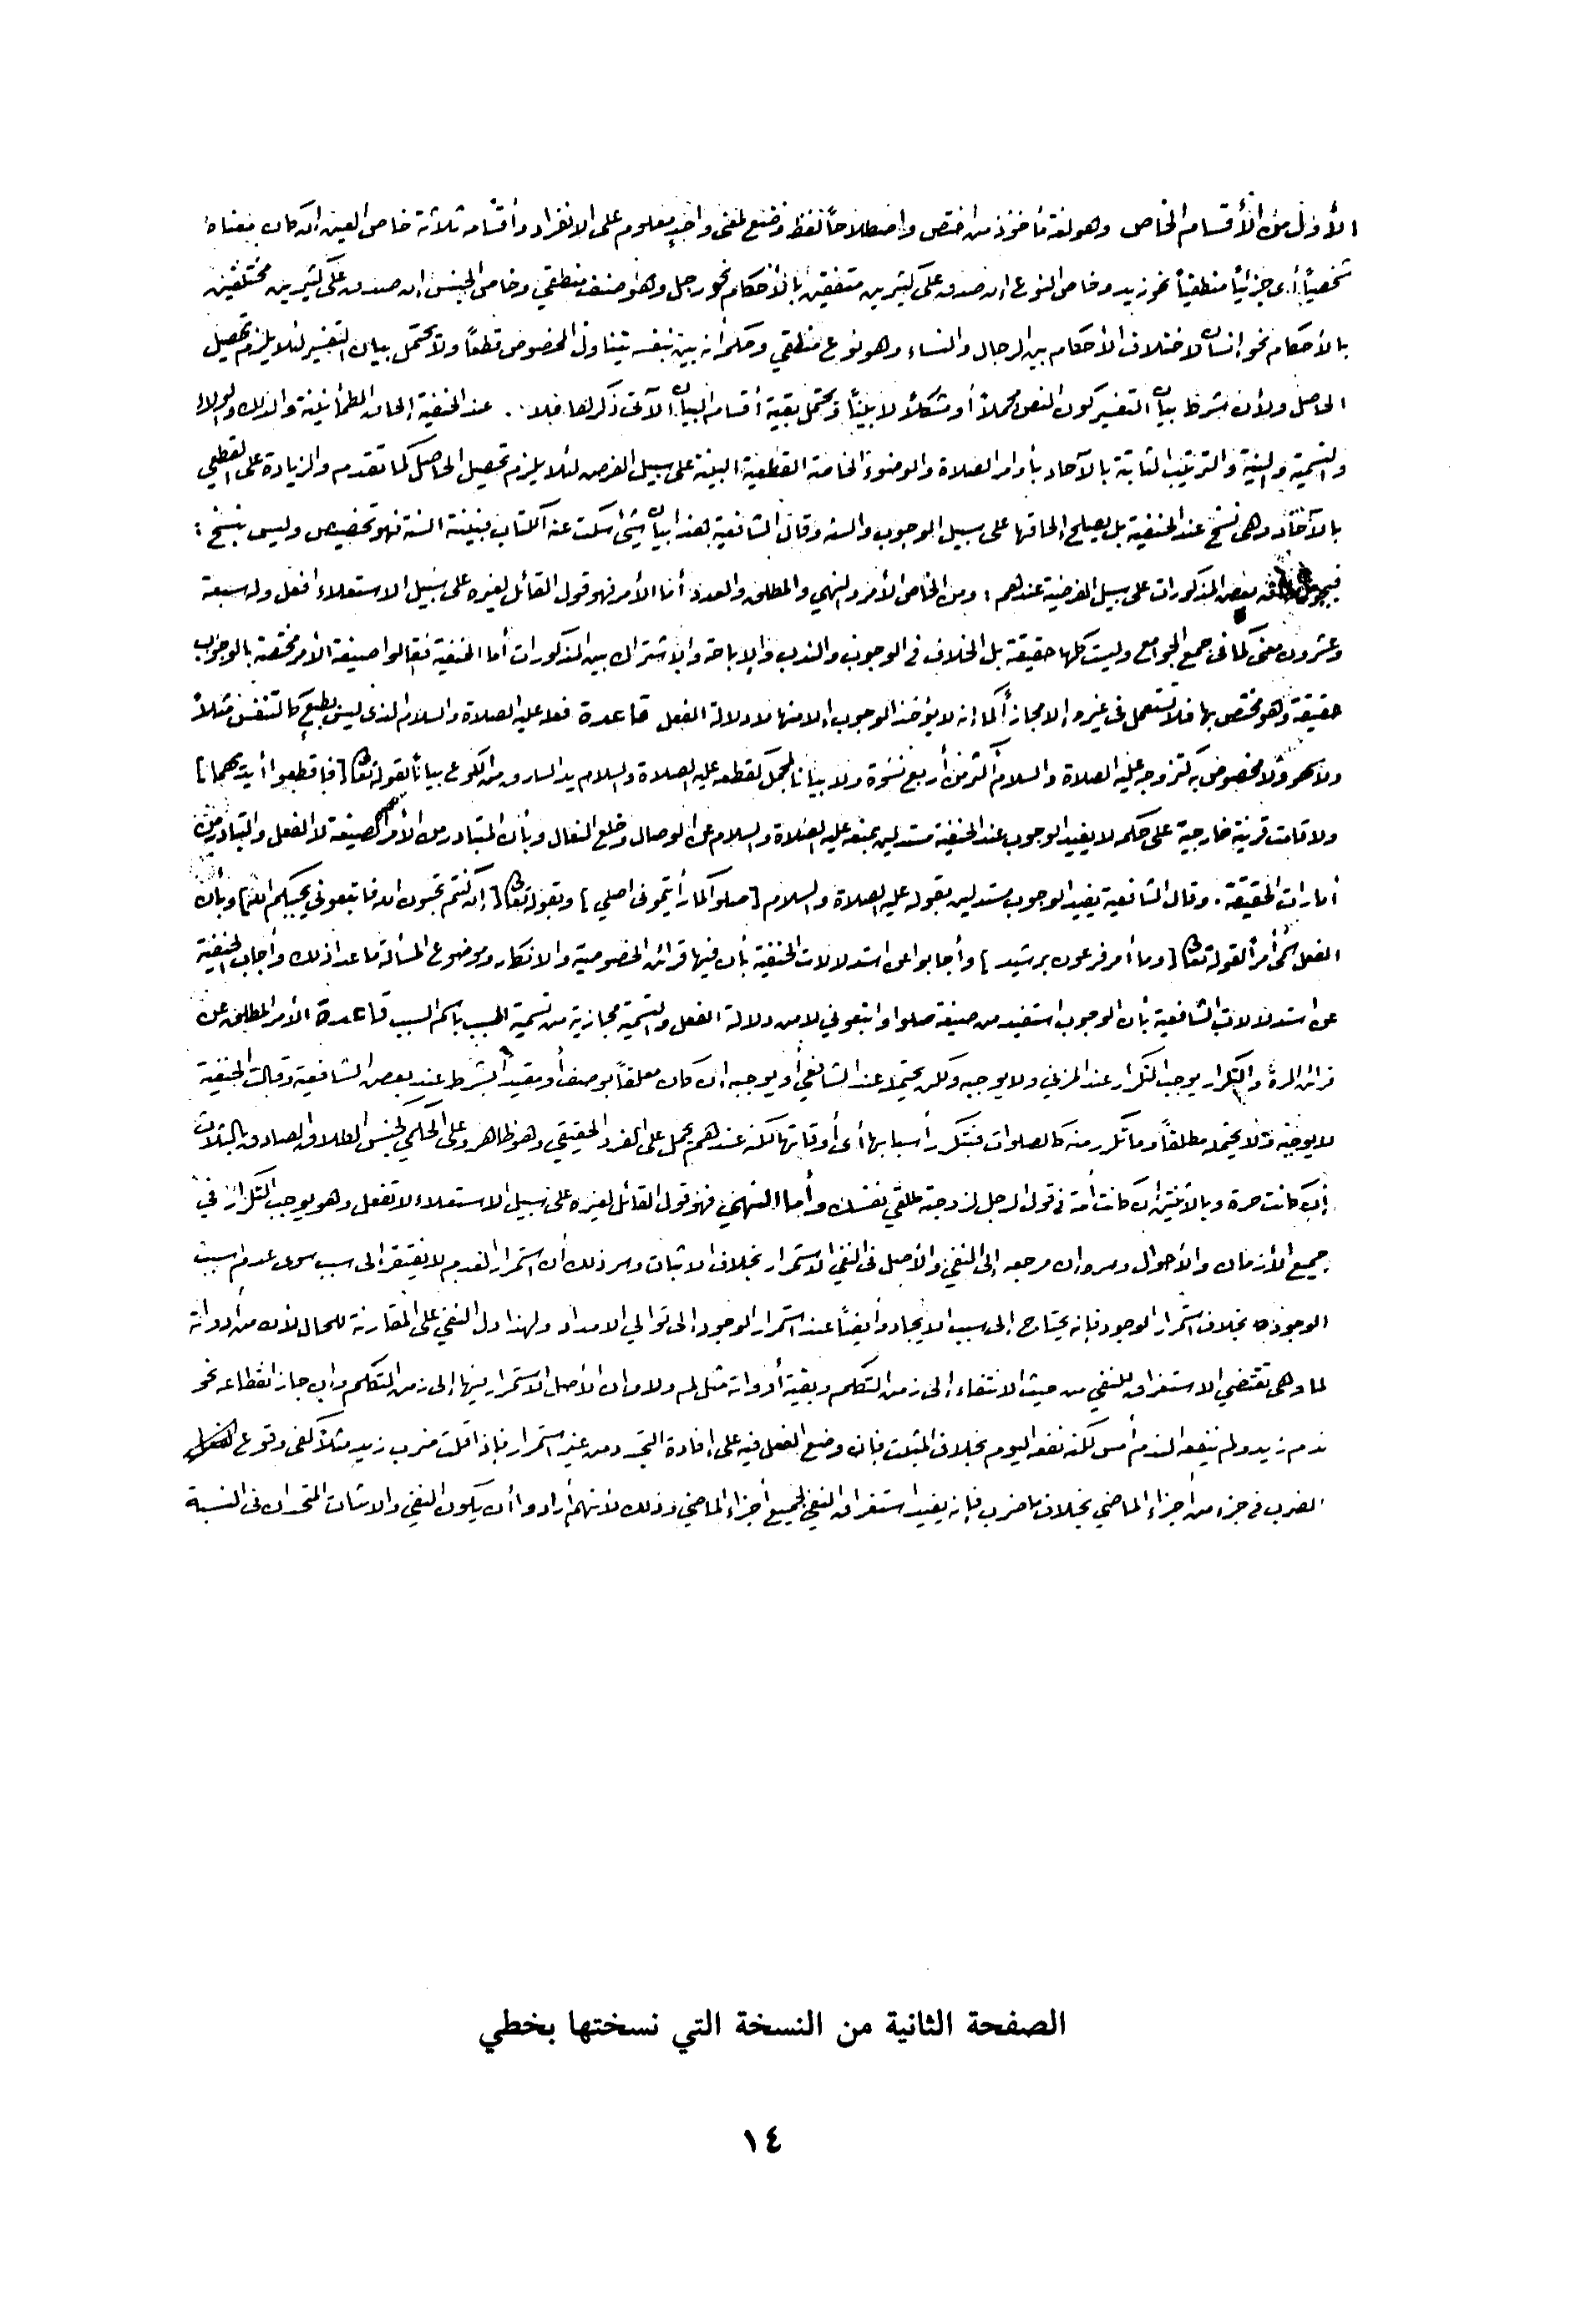 الأول من الأقسام الخاص وهو لغة مأخوذ من اختص واصطلاحاً لفظ وضع لمعنى واحدٍ معلوم على الانفراد وأقسامه ثلاثة خاص العين إن كان معناه
شخصياً أي جزئياً منطقياً نحو زيد وخاص النوع إن صدق على كثيرين متفقين بالأحكام نحو رجل وهو صنف منطقي وخاص الجنس إن صدق على كثيرين مختلفين
بالأحكام نحو إنسان لاختلاف الأحكام بين الرجال والنساء وهو نوع منطقي وحكمه أنه بين بنفسه يتناول المخصوص قطعاً ولا يحتمل بيان التفسير لئلا يلزم تحصيل
الحاصل ولأن شرط بيان التفسير كون النص مجملاً أو مشكلاً لا بيّناً ويحتمل بقية أقسام البيان الآتي ذكرها فلا . عند الحنفية إلحاق الطمأنينة والدلك والولاء
والتسمية والنية والترتيب الثابتة بالآحاد بأوامر الصلاة والوضوء الخاصة القطعية البينة على سبيل الفرض لئلا يلزم تحصيل الحاصل كما تقدم والزيادة على القطعي
بالآحاد وهي نسخ عند الحنفية بل يصلح إلحاقها على سبيل الوجوب والسنة وقال الشافعية هذا بيان شيء سكت عنه الكتاب فبينته السنة فهو تخصيص وليس بنسخ :
بعض المذكورات على سبيل الفرضية عندهم : ومن الخاص الأمر والنهي والمطلق والعدد أما الأمر فهو قول القائل لغيره على سبيل الاستعلاء افعل وله سبعة
وعشرون معنى كما في جمع الجوامع وليست كلها حقيقة بل الخلاف في الوجوب والندب والإباحة والاشتراك بين المذكورات أما الحنفية فقالوا صيغة الأمر مختصة بالوجوب
حقيقة وهو مختص بها فلا تستعمل في غيره إلا مجازاً كما إنه لا يؤخذ الوجوب إلا منها لا دلالة الفعل قاعدة فعله عليه الصلاة والسلام الذي ليس بطبع كالتنفس مثلاً
ولا سهو ولا مخصوص به كتزوجه عليه الصلاة والسلام أكثر من أربع نسوة ولا بياناً لمجمل كقطعه عليه الصلاة والسلام يد السارق من الكوع بياناً لقوله تعالى [ فاقطعوا أيديهما ]
ولا قامت قرينة خارجية على حكمه لا يفيد الوجوب عند الحنفية مستدلين بمنعه عليه الصلاة والسلام عن الوصال وخلع النعال وبأن المتبادر من الأمر الصيغة لا الفعل والتبادر من
أمارات الحقيقة . وقال الشافعية يفيد الوجوب مستدلين بقوله عليه الصلاة والسلام [ صلوا كما رأيتموني اصلي ] وبقوله تعالى [ إن كنتم تحبون الله فاتبعوني يحببكم الله ] وبأن
الفعل سمي أمراً لقوله تعالى [ وما أمر فرعون برشيد ] وأجابوا عن استدلالات الحنفية بأن فيها قرائن الخصوصية والانكار وموضوع المسألة ما عدا ذلك وأجاب الحنفية
عن استدلالات الشافعية بأن الوجوب استفيد من صيغة صلوا واتبعوني لا من دلالة الفعل والتسمية مجازية من تسمية المسبب باسم السبب قاعدة الأمر المطلق عن
قرائن المرة والتكرار يوجب التكرار عند المزني ولا يوجبه ولكن يحتمله عند الشافعي أو يوجبه إن كان معلقاً بوصف أو مقيداً بشرط عند بعض الشافعية وقالت الحنفية
لا يوجبه ولا يحتمله مطلقاً وما تكرر منه كالصلوات فبتكرر أسبابها أي أوقاتها لكنه عندهم يحمل على الفرد الحقيقي وهو ظاهر وعلى الحكمي كجنس الطلاق الصادق بالثلاث
إن كانت حرة وبالاثنتين إن كانت أمة في قول الرجل لزوجته طلقي نفسك وأما النهي فهو قول القائل لغيره على سبيل الاستعلاء لا تفعل وهو يوجب التكرار في
جميع الأزمان والأحوال وسره ان مرجعه إلى النفي والأصل في النفي الاستمرار بخلاف الاثبات وسر ذلك أن استمرار العدم لا يفتقر إلى سبب سوى عدم سبب
الوجود بخلاف استمرار الوجود فإنه يحتاج إلى سبب الايجاد وأيضاً عند استمرار الوجود إلى توالي الامداد ولهذا دل النفي على المقارنة للحال لأن من أدواته
لما وهي تقتضي الاستغراق للنفي من حيث الانتفاء إلى زمن التكلم وبقية أدواته مثل لم ولا وان الأصل الاستمرار فيها إلى زمن التكلم وإن جاز انقطاعه نحو
ندم زيد ولم ينفعه الندم أمس لكنه نفعه اليوم بخلاف المثبت فإن وضع الفعل فيه على إفادة التجدد من غير استمرار فإذا قلت ضرب زيد مثلاً كفى وقوع
الضرب في جزء من أجزاء الماضي بخلاف ما ضرب فإنه يفيد استغراق النفي لجميع أجزاء الماضي وذلك لأنهم أرادوا أن يكون النفي والاثبات المتحدان في النسبة
الصفحة الثانية من النسخة التي نسختها بخطي
١٤